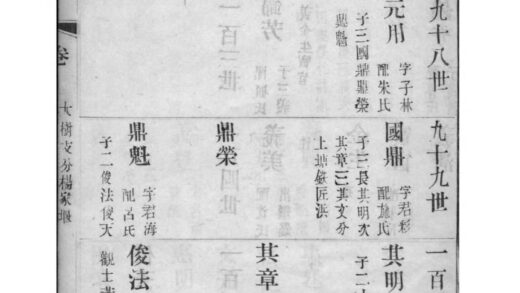 九十八世
元用
字子林
配朱氏
子三國鼎鼎榮
鼎魁
九十九世
國鼎
字君彩
配施氏
子三長其明次
其章三其文分
上塘鐵匠浜
鼎榮
鼎魁
字君海
配呂氏
子二俊法俊天
一百
其明
子二
其章
俊法
觀土
卷
大樹支分楊家堰